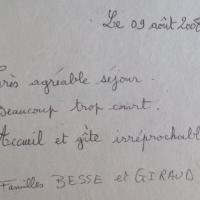 Le 09 août 2008
Très agréable séjour.
Beaucoup trop court.
Accueil et gîte irréprochabl
Familles BESSE et GIRAUD